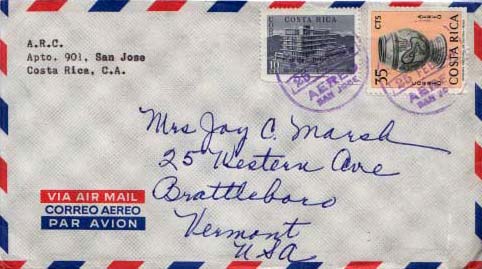 A.R.C.
Apto. 901, San Jose
Costa Rica, C.A.
COSTA RICA
10
35 CTS
COSTA RICA
25 FEB
AEREO
SAN JOSE
25 FEB
AEREO
SAN JOSE
Mrs Jay C. Marsh
25 Western Ave
Brattleboro
Vermont
USA
VIA AIR MAIL
CORREO AEREO
PAR AVION